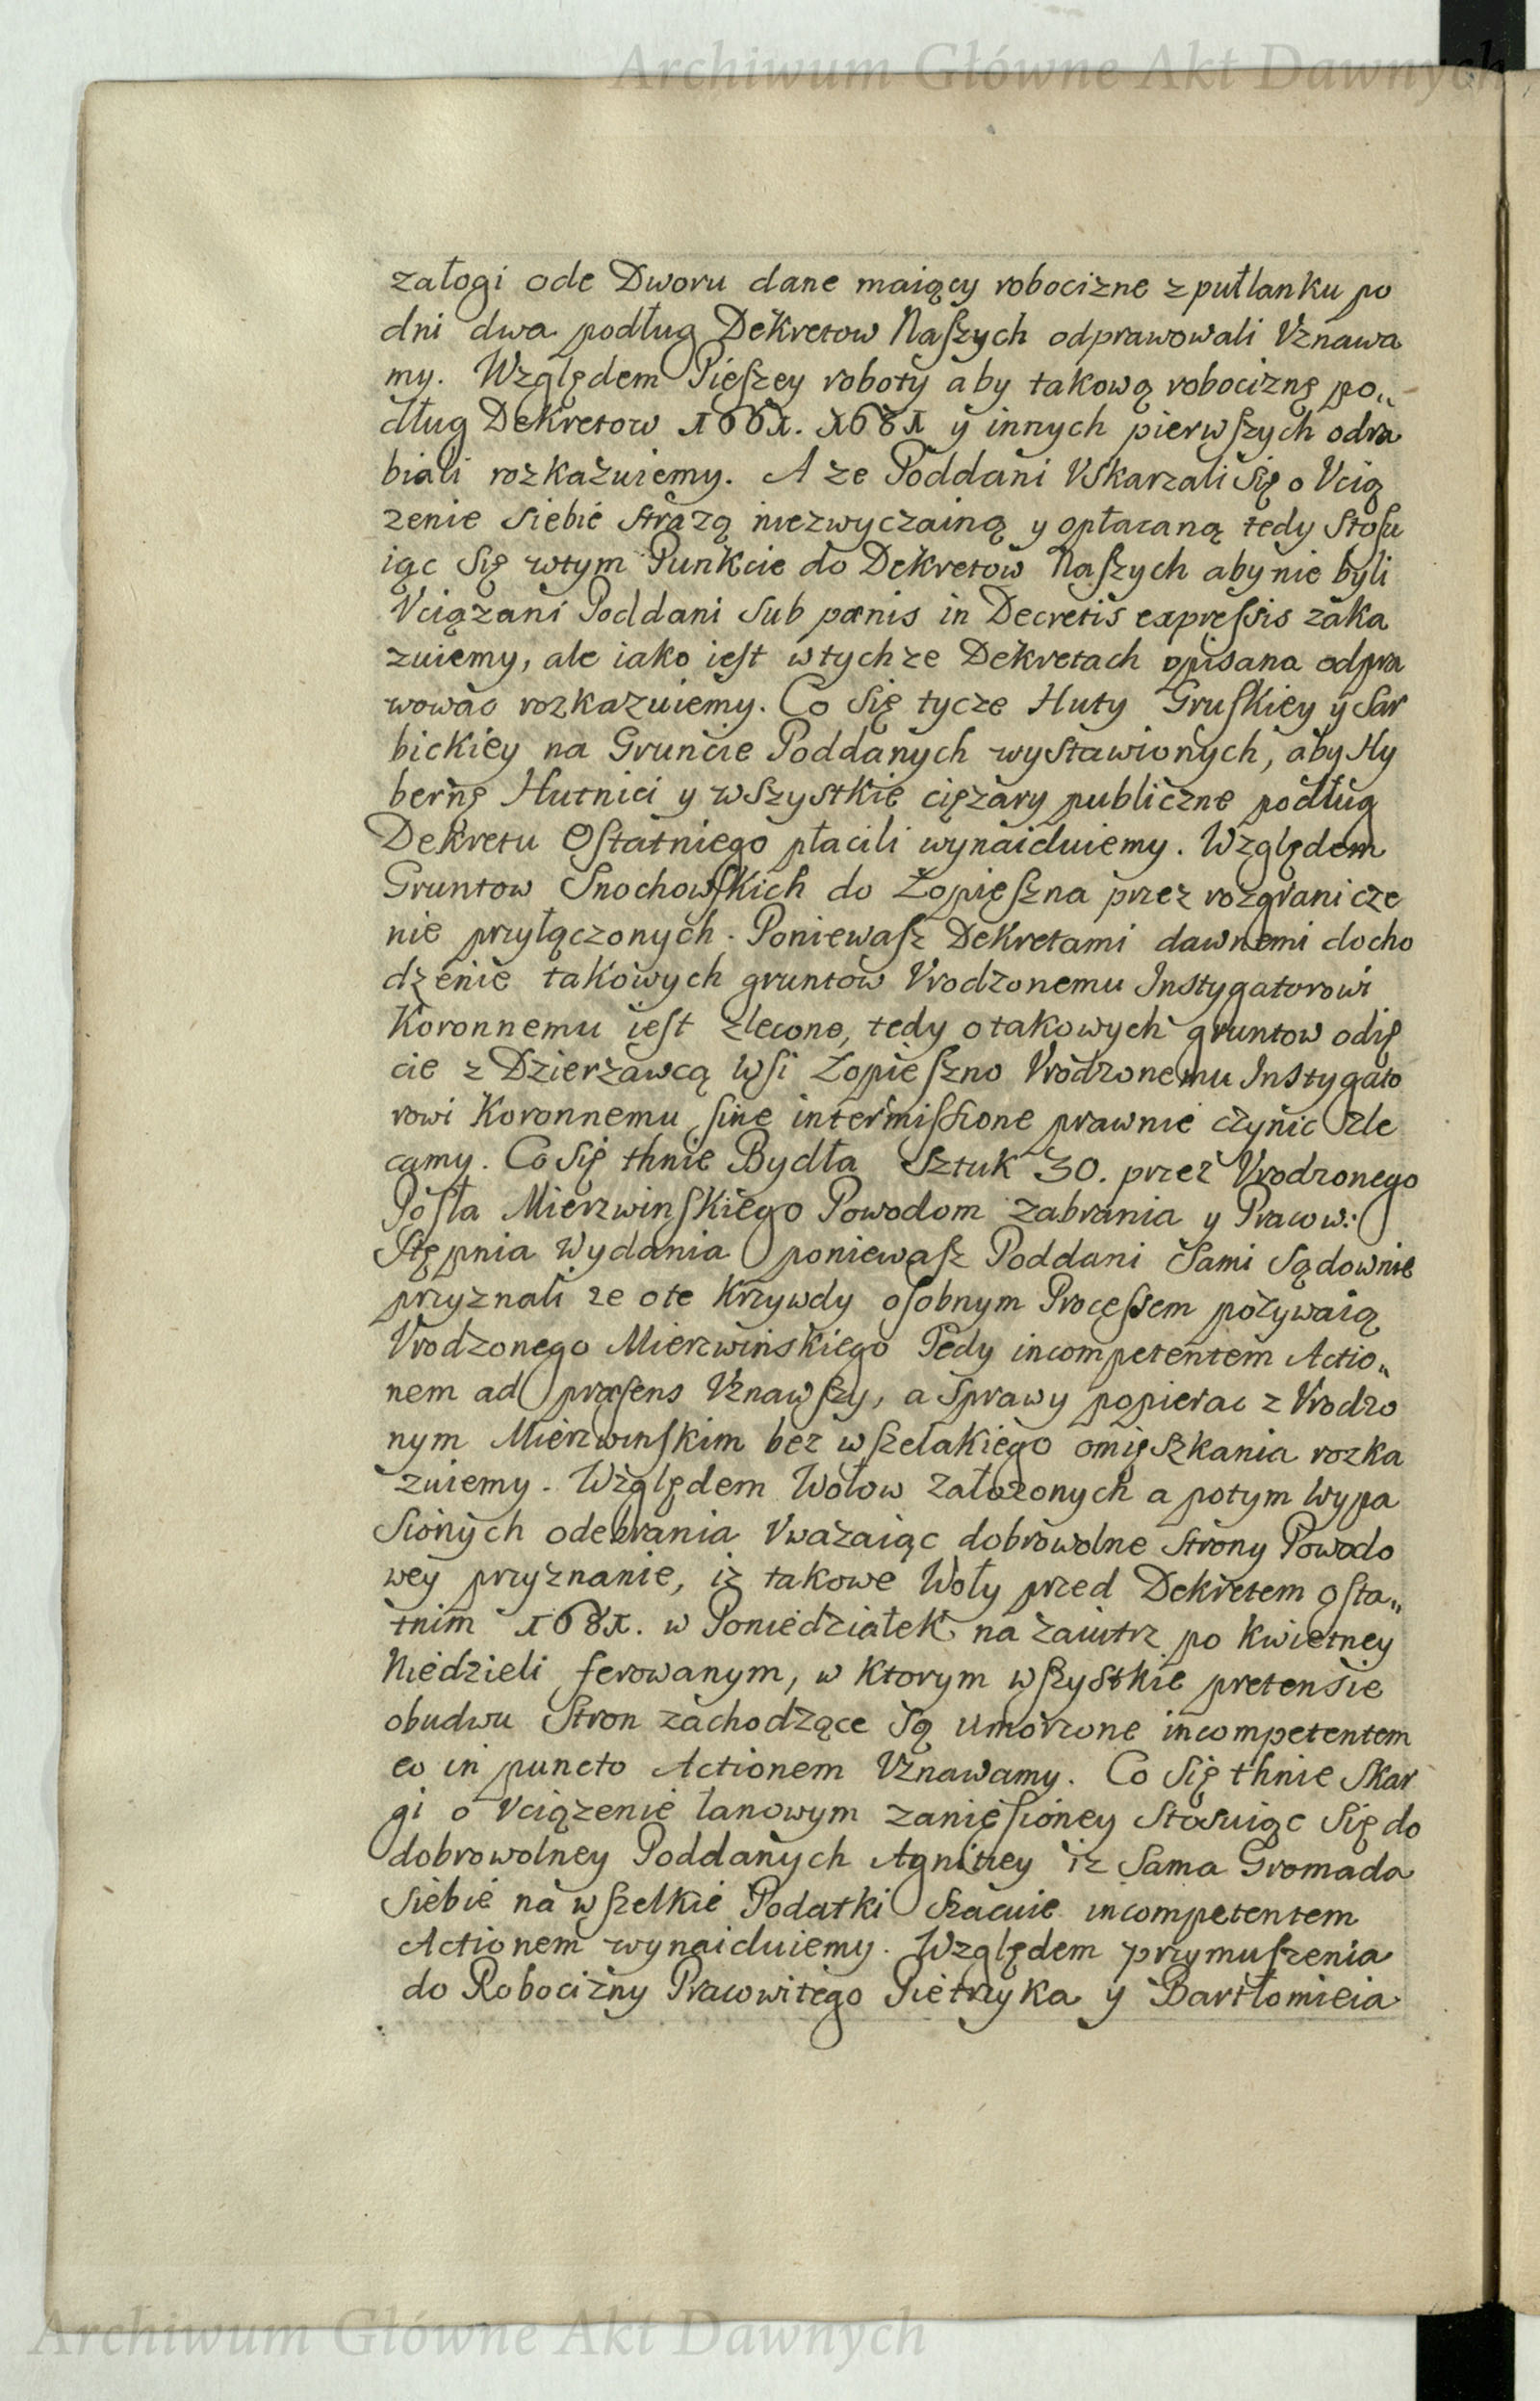 Archiwum Główne Akt Dawnych
załogi ode Dworu dane maiący robocizne z pułłanku po
dni dwa podług Dekretow Naszych odprawowali Vznawa
my. Względem Pieszey roboty aby takową robociznę po„
dług Dekretow 1661. 1681 y innych pierwszych odra
biali rozkazuiemy. A ze Poddani Vskarzali się o Vcią
zenie siebie strazą niezwyczainą y opłacaną tedy stosu
iąc się wtym Punkcie do Dekretow Naszych aby nie byli
Vciązani Poddani sub pænis in Decretis expressis zaka
zuiemy, ale iako iest w tychze Dekretach opisana odpra
wowac rozkazuiemy. Co się tycze Huty Gruskiey y Sar
bickiey na Gruncie Poddanych wystawionych, aby Hy
bernę Hutnici y wszystkie cięzary publiczne podług
Dekretu Ostatniego płacili wynaiduiemy. Względem
Gruntow Snochowskich do Łopięszna przez rozgranicze
nie przyłączonych. Poniewasz Dekretami dawnemi docho
dzenie takowych gruntow Vrodzonemu Instygatorowi
Koronnemu iest zlecone, tedy o takowych gruntow odię
cie z Dzierzawcą Wsi Łopieszno Vrodzonemu Instygato
rowi Koronnemu sine intermissione prawnie czynic zle
camy. Co się thnie Bydła sztuk 30. przez Vrodzonego
Posła Mierzwinskiego Powodom zabrania y Pracow:
Stępnia Wydania poniewasz Poddani sami sądownie
przyznali ze o te krzywdy osobnym Processem pozywaią
Vrodzonego Mierzwinskiego Tedy incompetentem Actio„
nem ad præsens Vznawszy, a sprawy popierac z Vrodzo
nym Mierzwinskim bez wszelakiego omięszkania rozka
zuiemy. Względem Wołow załozonych a potym Wypa
sionych odebrania Vwazaiąc dobrowolne strony Powodo
wey przyznanie, iz takowe Woły przed Dekretem osta„
tnim 1681. w Poniedziałek na zaiutrz po kwietney
Niedzieli ferowanym, w ktorym wszystkie pretensie
obudwu Stron zachodzące są umorzone incompetentem
eo in puncto Actionem Vznawamy. Co się thnie skar
gi o Vciązenie łanowym zaniesioney stosuiąc się do
dobrowolney Poddanych Agnitiey iz sama Gromada
siebie na wszelkie Podatki szacuie incompetentem
Actionem wynaiduiemy. Względem przymuszenia
do Robocizny Pracowitego Pietrzyka y Bartłomieia
Archiwum Główne Akt Dawnych